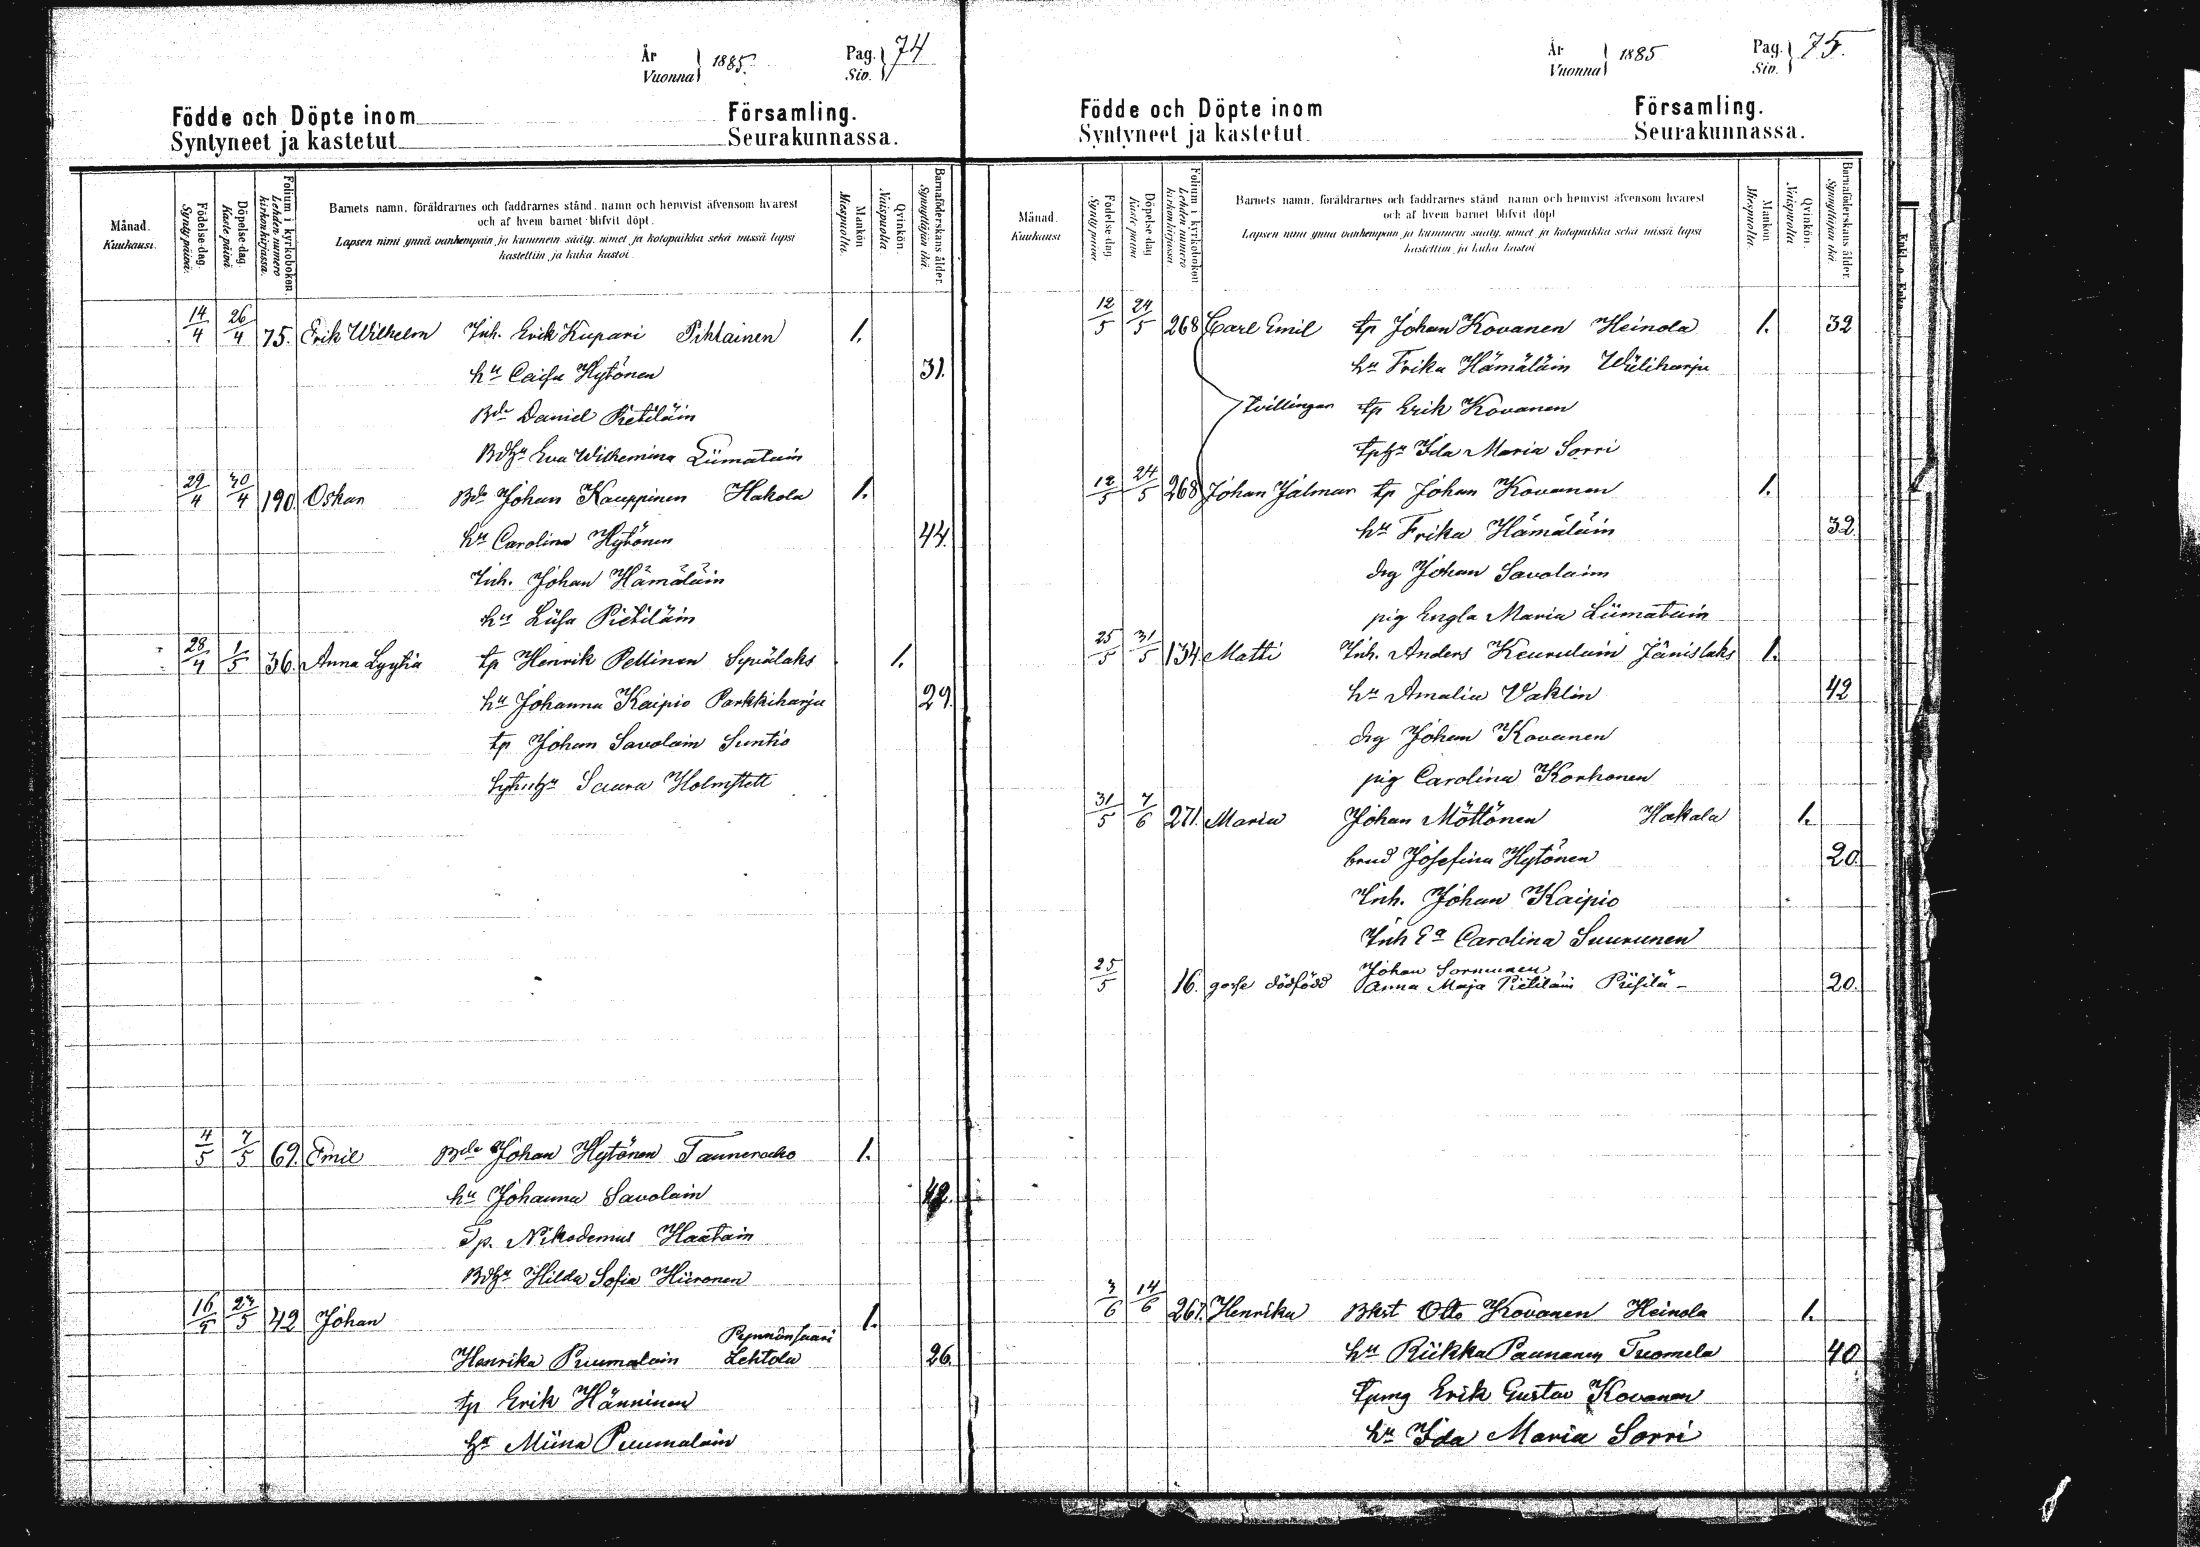 År
Vuonna
1885.
Pag.
Siv.
74
Födde och Döpte inom Församling.
Syntyneet ja kastetut Seurakunnassa.
Månad.
Kuukausi.
Födelse-dag.
Synty päivä.
Döpelse-dag.
Kaste päivä
Folium i kyrkoboken.
Lehden numero kirkonkirjassa.
Barnets namn, föräldrarnes och faddrarnes stånd, namn och hemvist äfvensom hvarest
och af hvem barnet blifvit döpt.
Lapsen nimi ynnä vanhempain ja kummein sääty, nimet ja kotopaikka sekä missä lapsi
kastettiin ja kuka kastoi.
Mankön
Miespuolta.
Qvinkön.
Naispuolta.
Barnaföderskans ålder.
Synnyttäjän ikä.
14/4 26/4 75. Erik Wilhelm Inh. Erik Kupari Pihlainen 1.
hu Caisa Hytönen 31.
Bde Daniel Pietiläin
Bdhu Eva Wilhemina Liimatain
29/4 30/4 190. Oskar Bde Johan Kauppinen Hakola 1.
hu Carolina Hytönen 44.
Inh. Johan Hämäläin
hu Liisa Pietiläin
28/4 1/5 36. Anna Lyytia tp Henrik Pellinen Sysälaks 1.
hu Johanna Kaipio Parkkiharju 29.
tp Johan Savolain Suntio
Saara Holmstett
4/5 7/5 69. Emil Bde Johan Hytönen 1.
hu Johanna Savolain 42.
Tp. Nikodemus Haatain
Bdhu Hilda Sofia Hiironen
16/5 23/5 42 Johan 1.
Pynnönsaari
Henrika Puumalain Lehtola 26.
tp Erik Hänninen
hu Miina Puumalain
År
Vuonna
1885
Pag.
Siv.
75.
Födde och Döpte inom Församling.
Syntyneet ja kastetut Seurakunnassa.
Månad.
Kuukausi
Födelse-dag
Synty päivä
Döpelse-dag
Kaste päivä
Folium i kyrkoboken
Lehden numero kirkonkirjassa.
Barnets namn, föräldrarnes och faddrarnes stånd namn och hemvist äfvensom hvarest
och af hvem barnet blifvit döpt
Lapsen nimi ynnä vanhempain ja kummein sääty, nimet ja kotopaikka sekä missä lapsi
kastettiin ja kuka kastoi
Mankön
Miespuolta.
Qvinkön.
Naispuolta
Barnaföderskans ålder.
Synnyttäjän ikä.
12/5 24/5 268 Carl Emil tp Johan Kovanen Heinola 1. 32
hu Frika Hämäläin Wiiliharju
Tvillingar tp Erik Kovanen
tphu Ida Maria Sorri
12/5 24/5 268 Johan Jalmar tp Johan Kovanen 1.
hu Frika Hämäläin 32
drg Johan Savolainn
pig Engla Maria Liimatain
25/5 31/5 134 Matti Inh. Anders Keurulain Jänislaks 1.
hu Amalia Vaklin 42
drg Johan Kovanen
pig Carolina Korhonen
31/5 7/6 271. Maria Johan Möttönen Hakala 1.
brud Josefina Hytönen 20.
Inh. Johan Kaipio
Inh Ea Carolina Suurunen
25/5 16. gosse dödfödd Johan Sormunen
Anna Maja Pietiläin Piisilä - 20.
3/6 14/6 267. Henrika Bkst Otto Kovanen Heinola 1.
hu Riikka Paunanen Tuomela 40
tpmg Erik Gustav Kovanen
hu Ida Maria Sorri